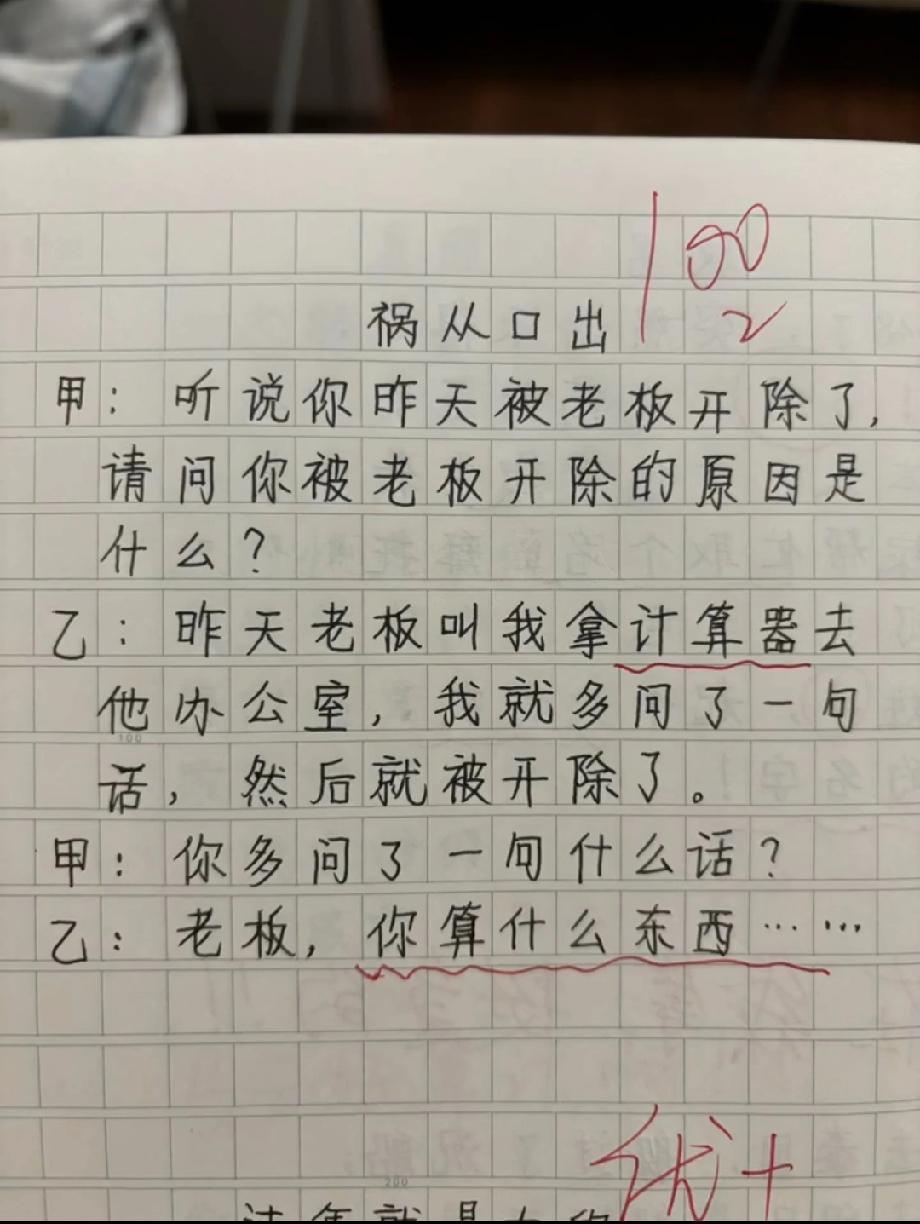 100
祸从口出
2
甲：听说你昨天被老板开除了，
请问你被老板开除的原因是
什么？
乙：昨天老板叫我拿计算器去
他办公室，我就多问了一句
话，然后就被开除了。
甲：你多问了一句什么话？
乙：老板，你算什么东西……
优+